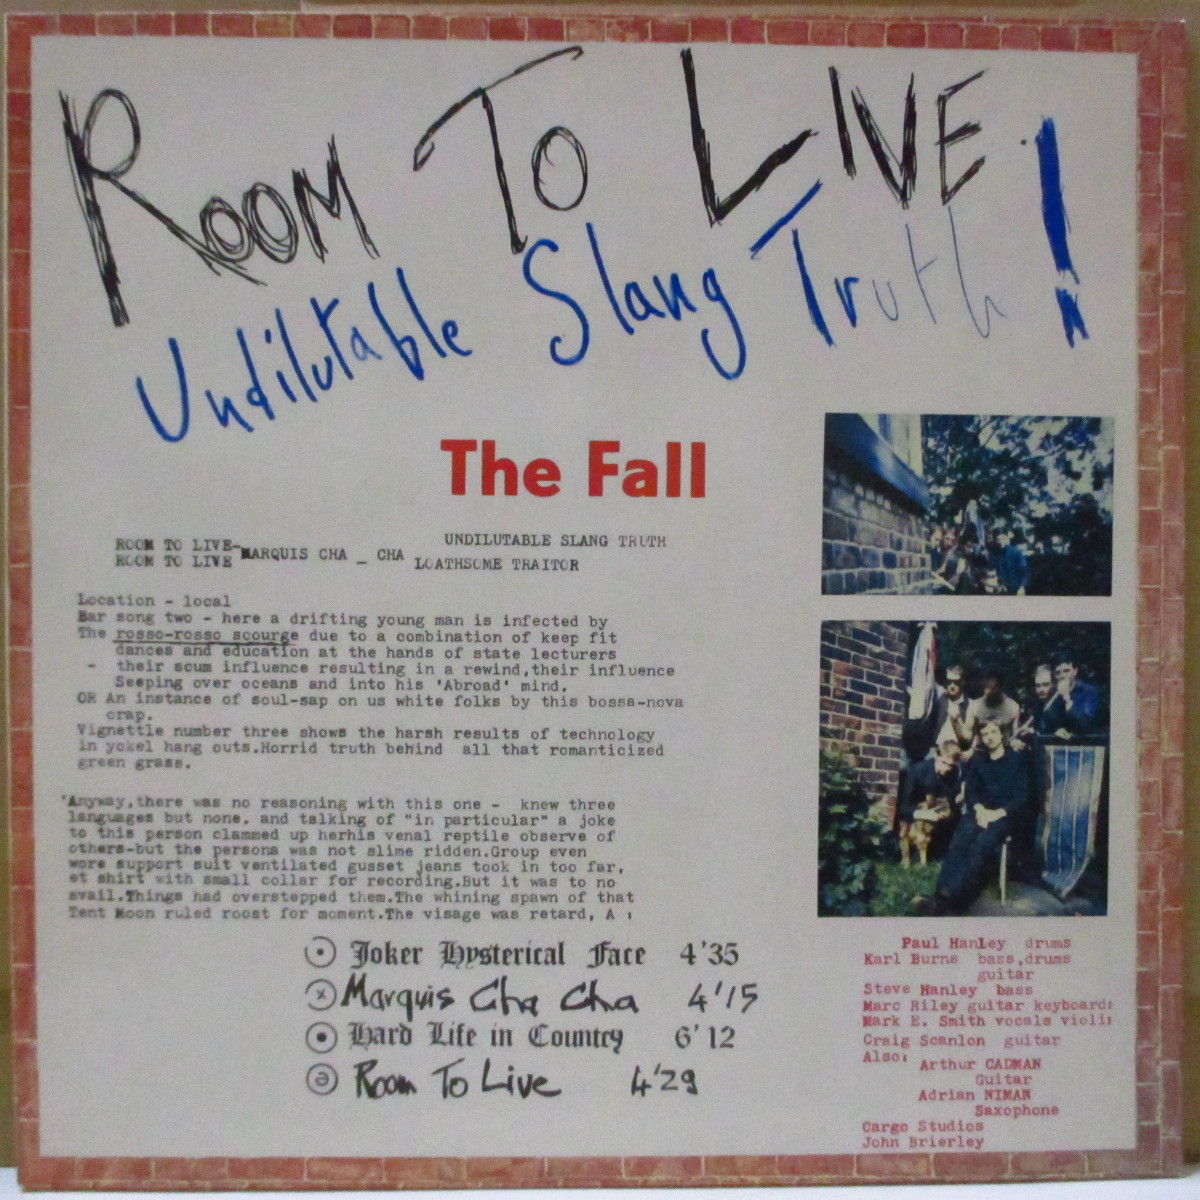 ROOM TO LIVE
Undilutable Slang Truth!
The Fall
ROOM TO LIVE- UNDILUTABLE SLANG TRUTH
MARQUIS CHA _ CHA
ROOM TO LIVE LOATHSOME TRAITOR
Location - local
Bar song two - here a drifting young man is infected by
The rosso-rosso scourge due to a combination of keep fit
dances and education at the hands of state lecturers
- their scum influence resulting in a rewind,their influence
Seeping over oceans and into his 'Abroad' mind.
OR An instance of soul-sap on us white folks by this bossa-nova
crap.
Vignettle number three shows the harsh results of technology
in yokel hang outs.Horrid truth behind all that romanticized
green grass.
'Anyway,there was no reasoning with this one - knew three
languages but none, and talking of "in particular" a joke
to this person clammed up herhis venal reptile observe of
others-but the persona was not slime ridden.Group even
wore support suit ventilated gusset jeans took in too far,
et shirt with small collar for recording.But it was to no
avail.Things had overstepped them.The whining spawn of that
Tent Moon ruled roost for moment.The visage was retard, A :
Joker Hysterical Face 4'35
Marquis Cha Cha 4'15
Hard Life in Country 6'12
Room To Live 4'29
Paul Hanley drums
Karl Burns bass,drums
guitar
Steve Hanley bass
Marc Riley guitar keyboards
Mark E. Smith vocals violin
Craig Scanlon guitar
Also:
Arthur CADMAN
Guitar
Adrian NIMAN
Saxophone
Cargo Studios
John Brierley